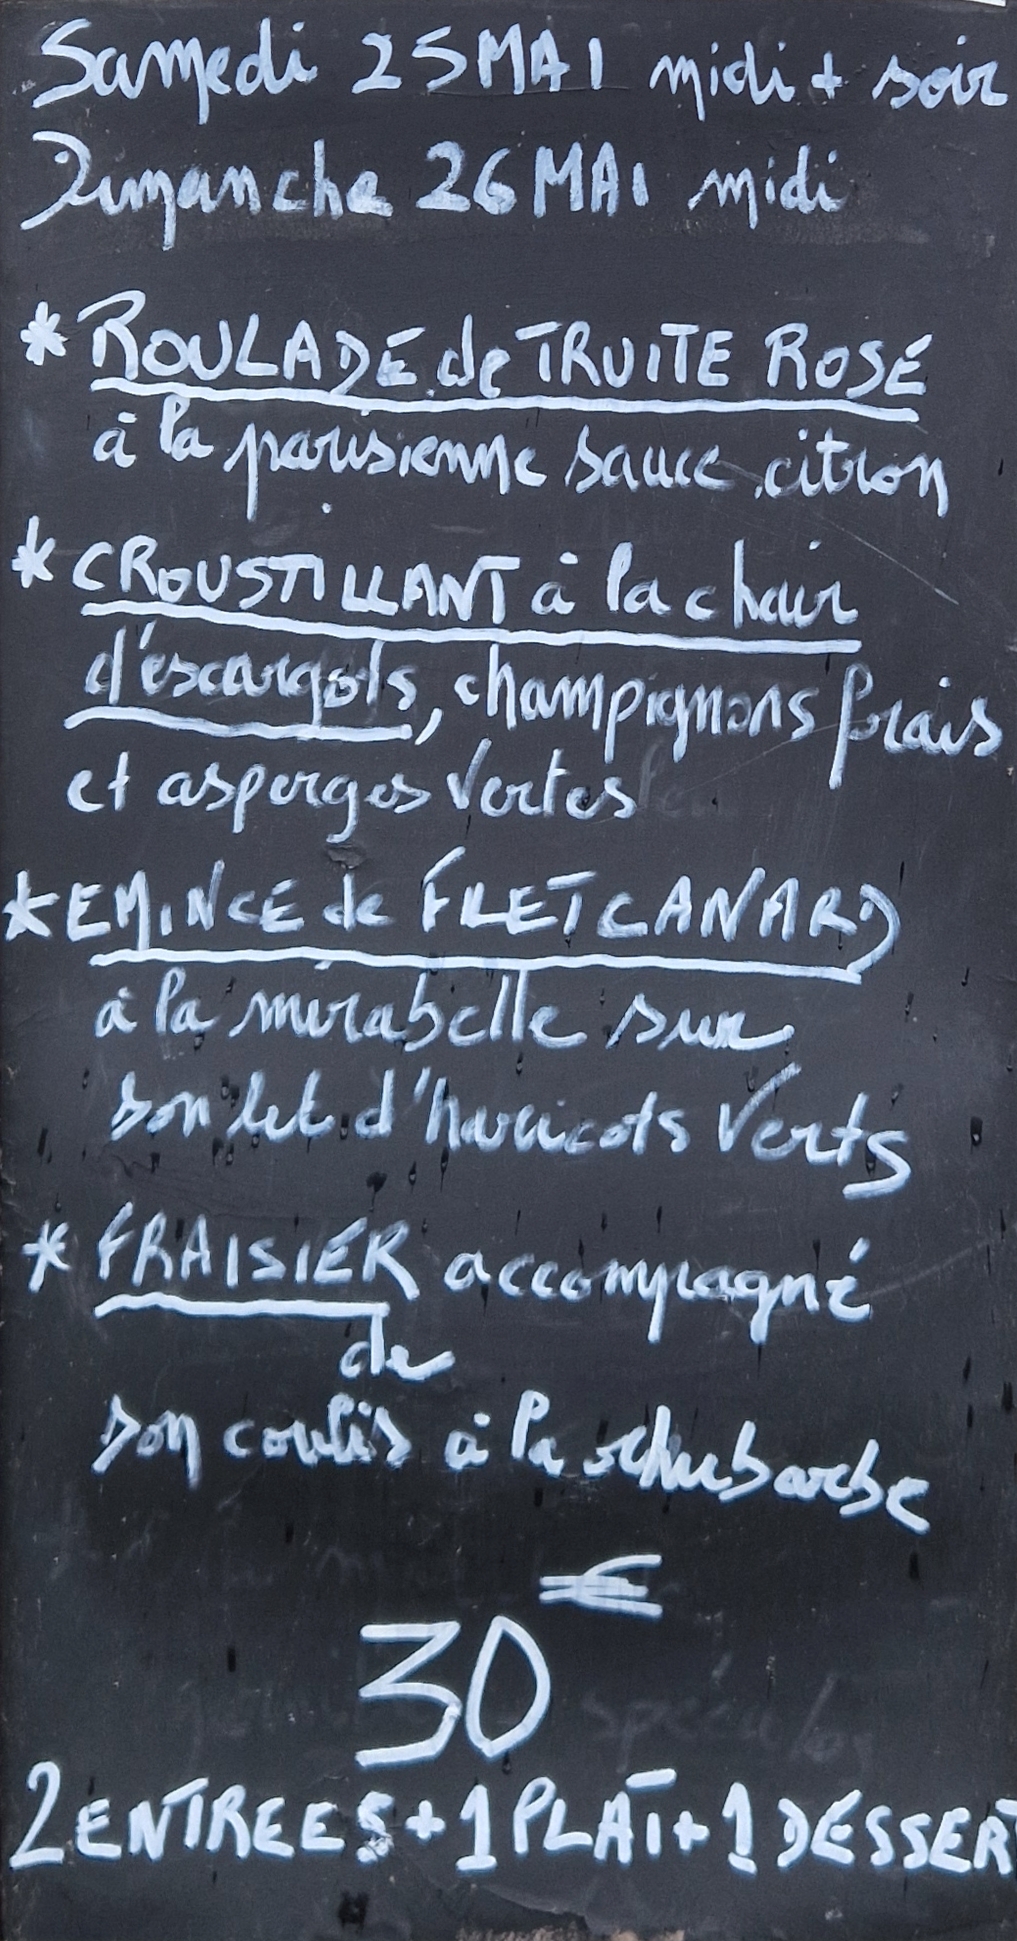 Samedi 25 MAI midi + soir
Dimanche 26 MAI midi
* ROULADE de TRUITE ROSÉ
à la parisienne sauce citron
* CROUSTILLANT à la chair
d'escargots, champignons frais
et asperges vertes
* EMINCÉ de FILET CANARD
à la mirabelle sur
son lit d'haricots verts
* FRAISIER accompagné
de
son coulis à la rhubarbe
€
30
2 ENTREES + 1 PLAT + 1 DESSERT